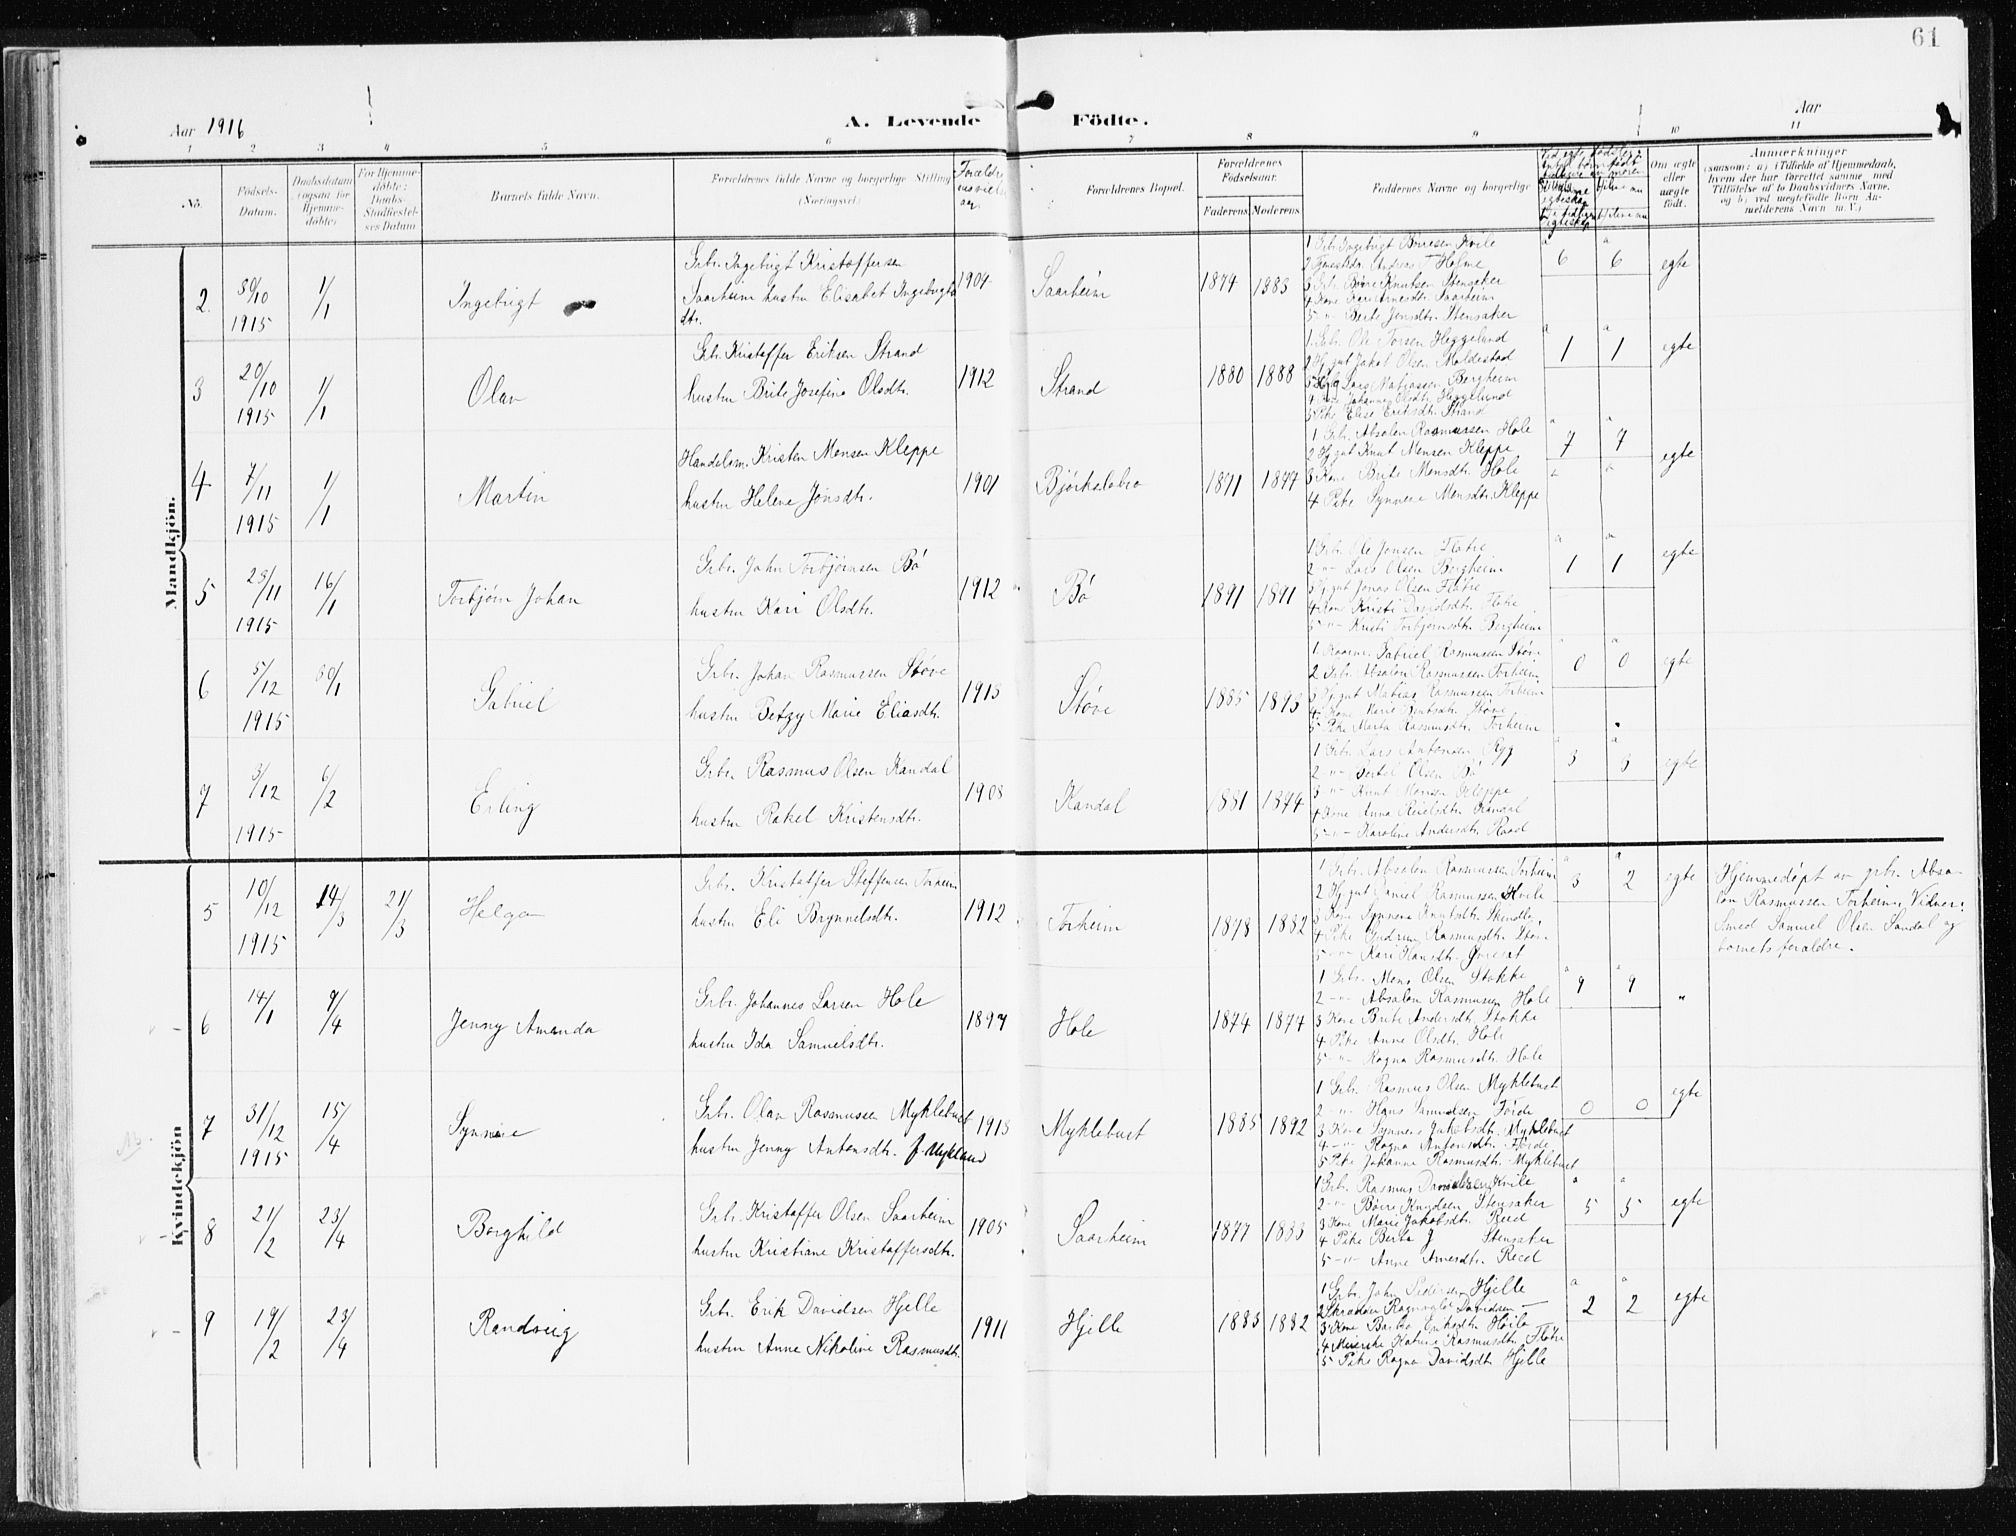 61
Aar 1916
A. Levende Födte.
Aar
1 2 3 4 5 6 7 8 9 10 11
No.
Födsels-
Datum.
Daabsdatum
(ogsaa for
Hjemme-
döbte)
For Hjemme-
döbte:
Daabs-
Stadfestel-
ses Datum
Barnets fulde Navn.
Forældrenes fulde Navne og borgerlige Stilling
(Næringsvei)
Forældrenes Bopæl.
Forældrenes
Födselsaar.
Faderens
Moderens
Faddernes Navne og borgerlige
Om ægte
eller
uægte
födt.
Anmærkninger
(saasom: a) i Tilfælde af Hjemmedaab,
hvem der har forrettet samme med
Tilföielse af to Daabsvidners Navne,
og b) ved uegtefödte Börn An-
melderens Navn m.V.)
Mandkjön.
2
30/10
1915
1/1
Ingebrigt
Grbr. Ingebrigt Kristoffersen
Saarheim hustru Elisabet Ingebrigts
dtr.
1904
Saarheim
1874 1883
1 Grbr. Ingebrigt Børresen Kvile
2 Tjenestedr. Andreas T Holme
3 Grbr. Børre Knutsen Stensaker
4 Kone Kari Arnesdtr. Saarheim
5 -"- Berte Jensdtr. Stensaker
6 6
egte
3
20/10
1915
1/1
Olav
Grbr. Kristoffer Eriksen Strand
hustru Brite Josefine Olsdtr.
1912
Strand
1880 1888
1. Grbr. Ole Torsen Heggelund
2 Hj.gut Jakob Olsen Moldestad
3 Lars Matiassen Bergheim
4 Johanne Olsdtr. Heggelund
5 Pike Elise Eriksdtr. Strand
1 1
egte
4
7/11
1915
1/1
Martin
Handelsm. Kristen Monsen Kleppe
hustru Helene Jonsdtr.
1901
Bjørkelobro
1871 1877
1. Grbr. Absalon Rasmussen Hole
2 Hj.gut Knut Monsen Kleppe
3 Kone Brite Monsdtr. Hole
4 Pike Synneve Monsdtr. Kleppe
7 7
egte
5
28/11
1915
16/1
Torbjørn Johan
Grbr. John Torbjørnsen Bø
hustru Kari Olsdtr.
1912
Bø
1891 1891
1 Grbr. Ole Jonsen Flotre
2 -"- Lars Olsen Bergheim
3 Hj.gut Jonas Olsen Flotre
4 Kone Kristi Davidsdtr. Flotre
5 -"- Kristi Torbjørnsdtr. Bergheim
1 1
egte
6
5/12
1915
30/1
Gabriel
Grbr. Johan Rasmussen Støve
hustru Betzy Marie Eliasdtr.
1913
Støve
1885 1893
1. Gabriel Rasmussen Støve
2 Grbr. Absalon Rasmussen Torheim
3 Hj.gut Matias Rasmussen Torheim
4 Kone Marie Støve
5 Pike Marta Rasmusdtr. Torheim
0 0
egte
7
3/12
1915
6/2
Erling
Grbr. Rasmus Olsen Kandal
hustru Rakel Kristensdtr.
1908
Kandal
1881 1874
1 Grbr. Lars Antonsen Ryg
2 -"- Bertel Olsen Bø
3 -"- Knut Monsen Kleppe
4 Kone Anna Kandal
5 -"- Karoline Andersdtr. Raad
3 3
egte
Kvindekjön
5
10/12
1915
14/3
21/3
Helga
Grbr. Kristoffer Steffensen Torheim
hustru Eli Brynnelsdtr.
1912
Torheim
1878 1882
1 Grbr. Absalon Rasmussen Torheim
2 Hj.gut Daniel Rasmussen Kvile
3 Kone Synneve Knutsdtr.
4 Pike Gudrun Rasmusdtr. Støve
5 -"- Kari Hansdtr.
3 2
egte
Hjemmedøpt av grbr. Absa-
lon Rasmussen Torheim. Vidner:
Smed Samuel Olsen Sandal og
barnets forældre.
6
14/1
9/4
Jenny Amanda
Grbr. Johannes Larsen Hole
hustru Ida Samuelsdtr.
1897
Hole
1874 1874
1 Grbr. Mons Olsen Stokke
2 -"- Absalon Rasmussen Hole
3 Kone Brite Andersdtr. Stokke
4 Pike Anne Olsdtr. Hole
5 -"- Ragna Rasmusdtr. Hole
9 9
"
7
31/12
1915
15/4
Synneve
Grbr. Olav Rasmussen Myklebust
hustru Jenny Antonsdtr. f. Mykland
1913
Myklebust
1885 1892
1 Grbr. Rasmus Olsen Myklebust
2 -"- Hans Samuelsen Førde
3 Kone Synneve Jakobsdtr. Myklebust
4 -"- Ragna Antonsdtr. Førde
5 Pike Johanne Rasmusdtr. Myklebust
0 0
egte
8
21/2
23/4
Borghild
Grbr. Kristoffer Olsen Saarheim
hustru Kristiane Kristoffersdtr.
1905
Saarheim
1877 1883
1 Grbr. Rasmus Danielsen Kvile
2 -"- Børre Knudsen Stensaker
3 Kone Marie Jakobsdtr. Reed
4 Pike Berta J Stensaker
5 -"- Anne Arnesdtr. Reed
5 5
egte
9
19/2
23/4
Randveig
Grbr. Erik Davidsen Hjelle
hustru Anne Nikoline Rasmusdtr.
1911
Hjelle
1883 1882
1 Grbr. John Pedersen Hjelle
2 Skrædder Ragnvald Davidsen —
3 Kone Barbro Eriksdtr. Hjelle
4 Meierske Katrine Rasmusdtr. Flotre
5 Pike Ragna Davidsdtr. Hjelle
2 2
egte